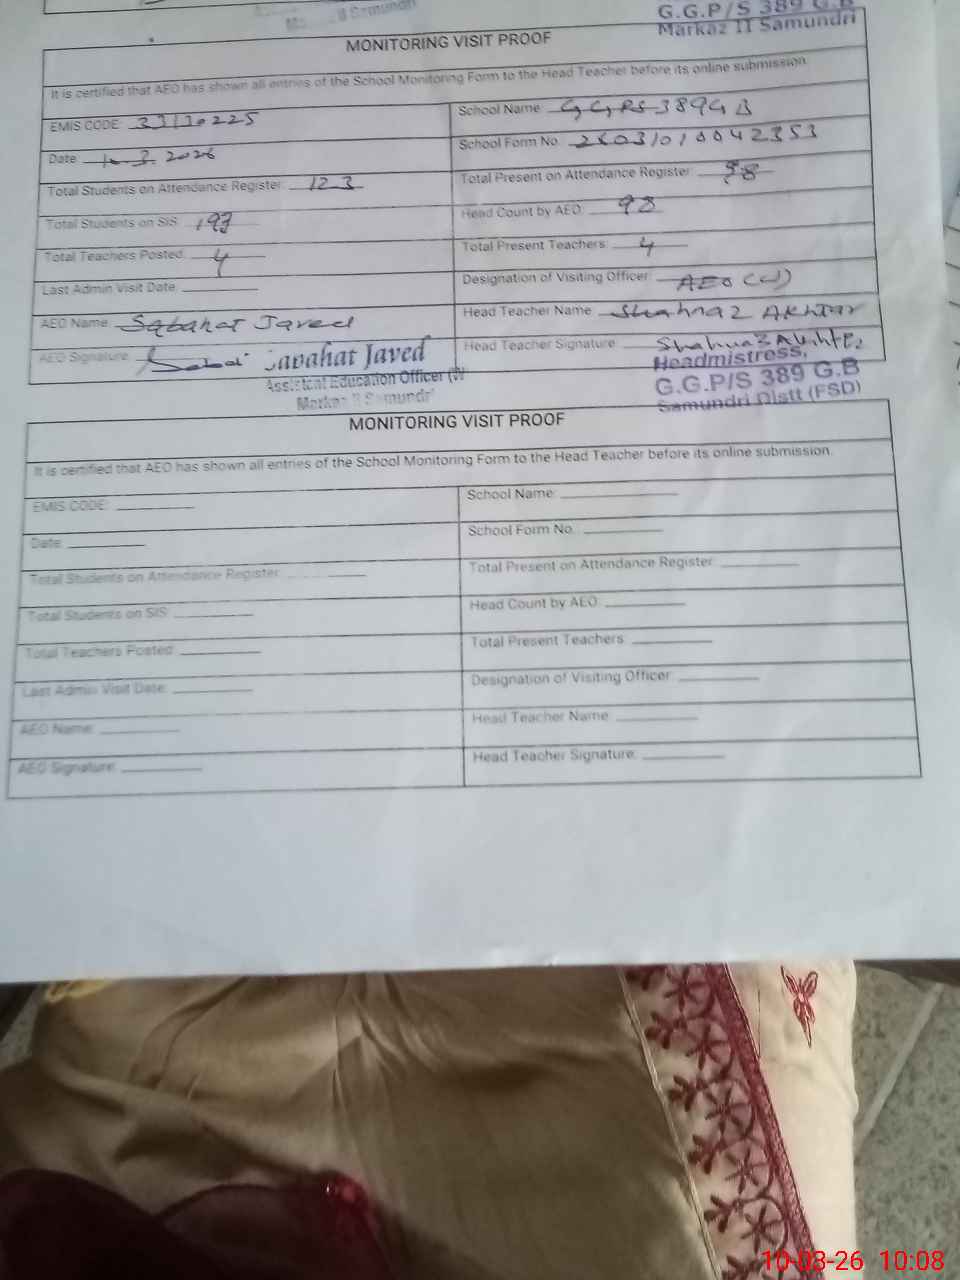 G.G.P/S 389 G.B
Markaz II Samundri
MONITORING VISIT PROOF
It is certified that AEO has shown all entries of the School Monitoring Form to the Head Teacher before its online submission.
EMIS CODE: 33130225 School Name: GGPS 389 GB
Date: 10-3-2026 School Form No.
Total Students on Attendance Register: 123 Total Present on Attendance Register: 98
Total Students on SIS: Head Count by AEO: 98
Total Teachers Posted: 4 Total Present Teachers: 4
Last Admin Visit Date: Designation of Visiting Officer: AEO (W)
AEO Name: Sabahat Javed Head Teacher Name: Shahnaz Akhtar
AEO Signature: Sabahat Javed Head Teacher Signature: Shahnaz Akhtar
Assistant Education Officer (W
Markaz II Samundri
Headmistress,
G.G.P/S 389 G.B
Samundri Distt (FSD)
MONITORING VISIT PROOF
It is certified that AEO has shown all entries of the School Monitoring Form to the Head Teacher before its online submission.
EMIS CODE: School Name:
Date: School Form No.
Total Students on Attendance Register: Total Present on Attendance Register:
Total Students on SIS: Head Count by AEO:
Total Teachers Posted: Total Present Teachers:
Last Admin Visit Date: Designation of Visiting Officer:
AEO Name: Head Teacher Name:
AEO Signature: Head Teacher Signature:
10-03-26 10:08